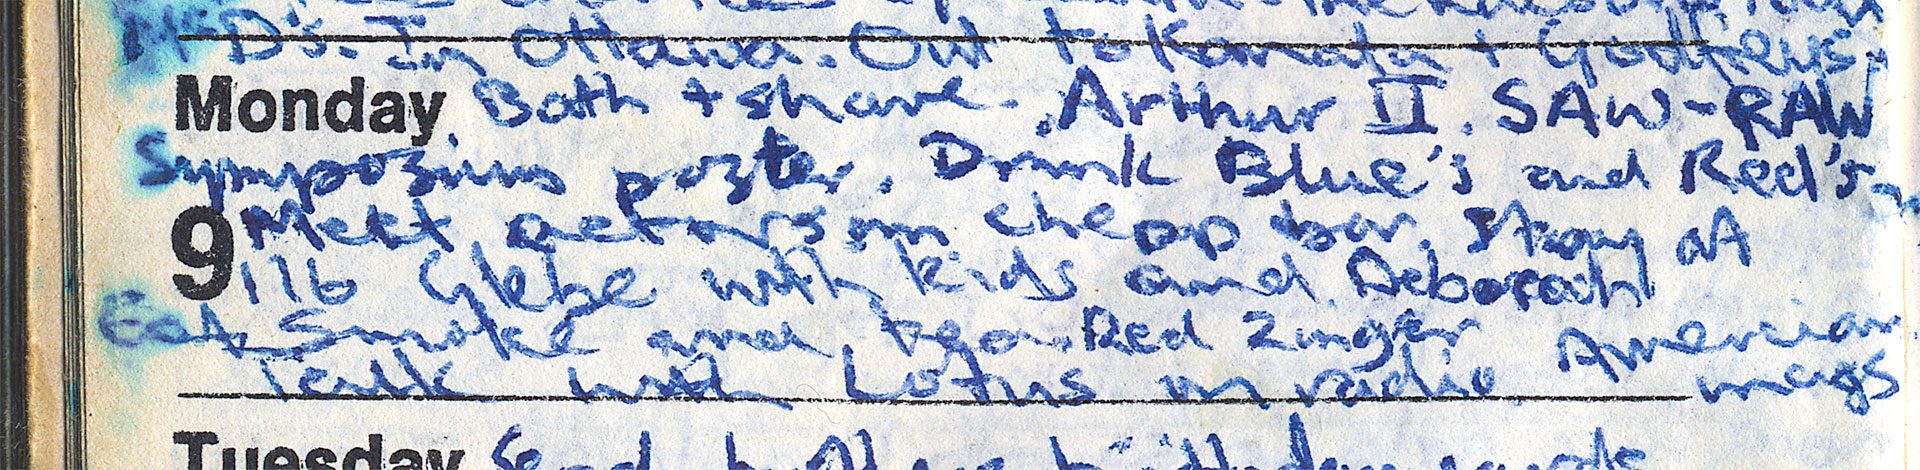 D's. In Ottawa. Out to Kanata + Godfreys.
Monday Bath + shave. Arthur II. SAW-RAW
Symposium poster. Drink Blue's and Red's
9 Meet actors in cheap bar. Stay at
116 Glebe with kids and Deborah
Eat Smoke and tea. Red Zinger American
Talk with Lotus on radio. mags
Tuesday Send birthday cards